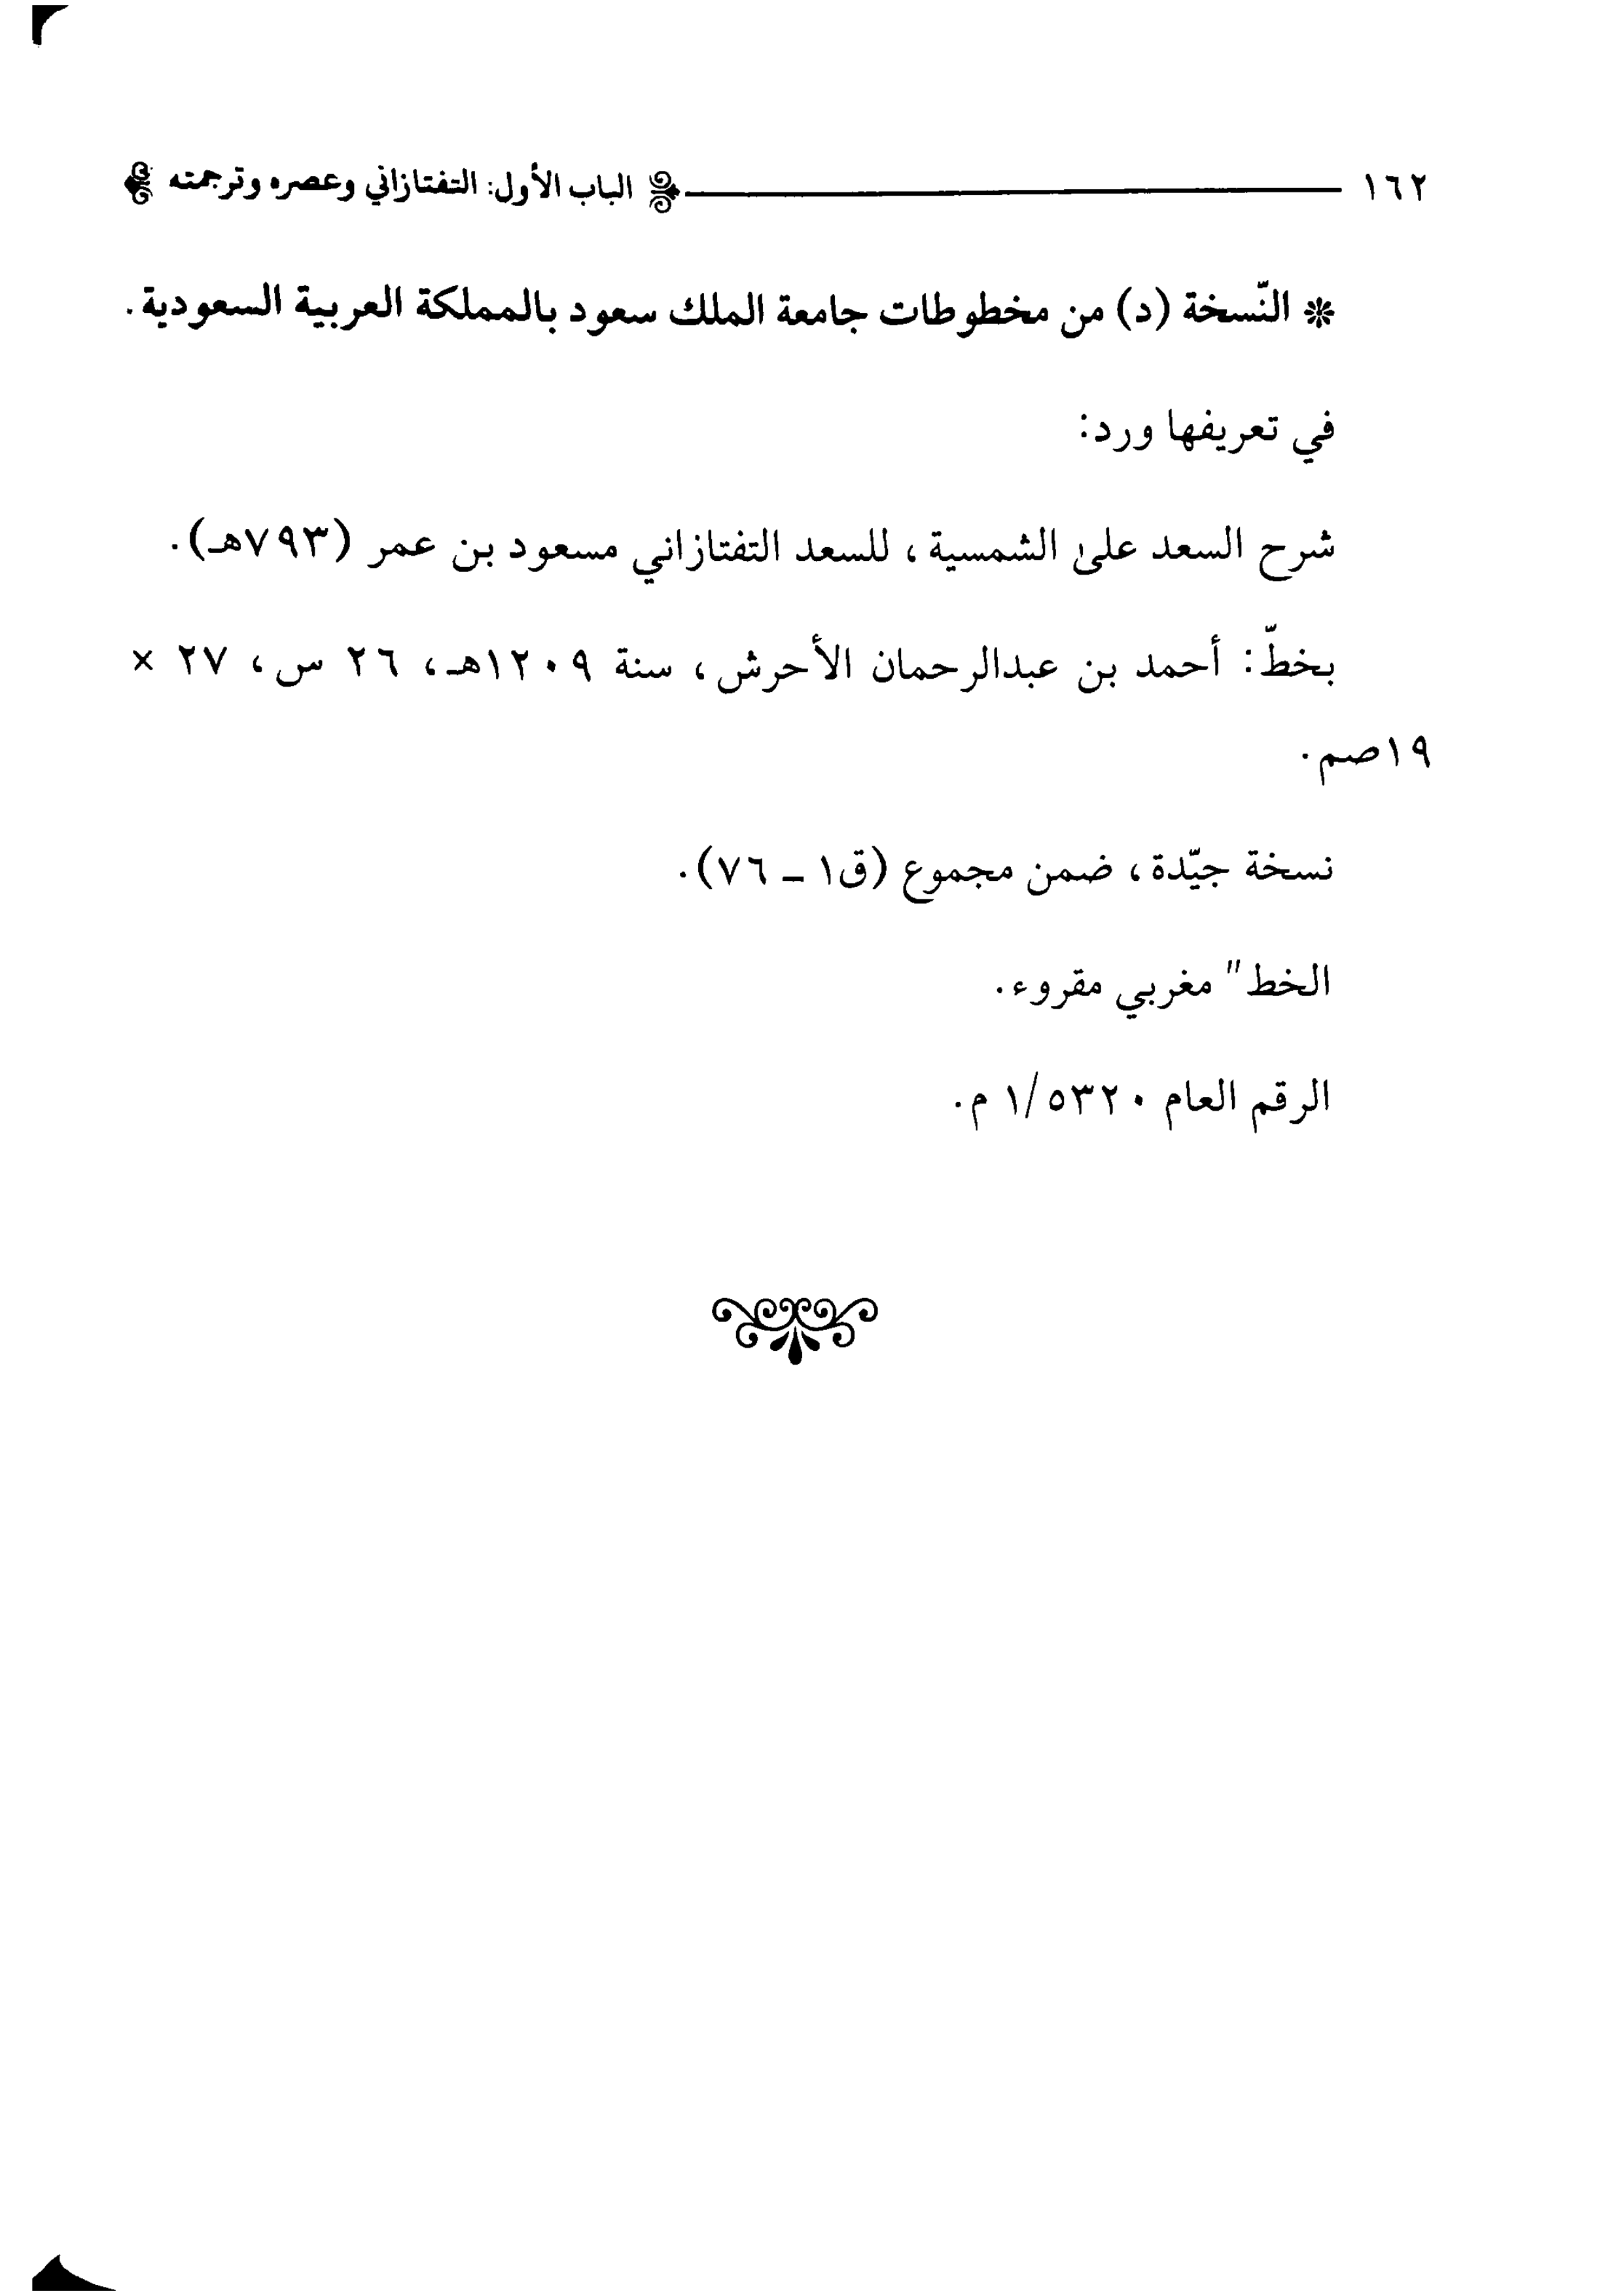 ١٦٢ الباب الأول: التفتازاني وعصره وترجمته
* النّسخة (د) من مخطوطات جامعة الملك سعود بالمملكة العربية السعودية.
في تعريفها ورد:
شرح السعد على الشمسية، للسعد التفتازاني مسعود بن عمر (٧٩٣هـ).
بخطّ: أحمد بن عبدالرحمان الأحرش، سنة ١٢٠٩هـ، ٢٦ س، ٢٧ ×
١٩صم.
نسخة جيّدة، ضمن مجموع (ق١ ـ ٧٦).
الخط" مغربي مقروء.
الرقم العام ٥٣٢٠/١ م.